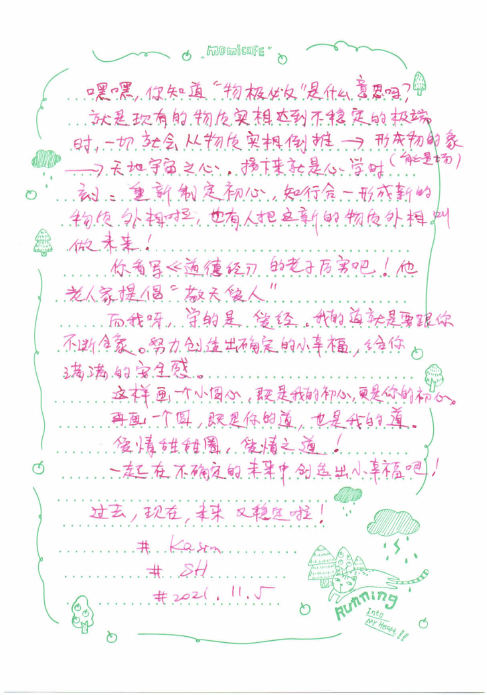 momicafe
嘿嘿，你知道“物极必反”是什么意思吗？
就是现有的物质实相达到不稳定的极端
时，一切就会从物质实相倒推 → 形成物的象
（能量场）
→ 天地宇宙之心。接下来就是心学时
刻：重新制定初心，知行合一形成新的
物质外相啦，也有人把这新的物质外相叫
做未来！
你看写《道德经》的老子厉害吧！他
老人家提倡“敬天爱人”
而我呀，学的是爱经。我的道就是要跟你
不断合象。努力创造出确定的小幸福，给你
满满的安全感。
这样画一个小圆心，既是我的初心，更是你的初心。
再画一个圆，既是你的道，也是我的道。
爱情甜甜圈，爱情之道！
一起在不确定的未来中创造出小幸福吧！
过去，现在，未来 又稳定啦！
# Kason
# SH
# 2021.11.5
Running
Into
My Heart !!